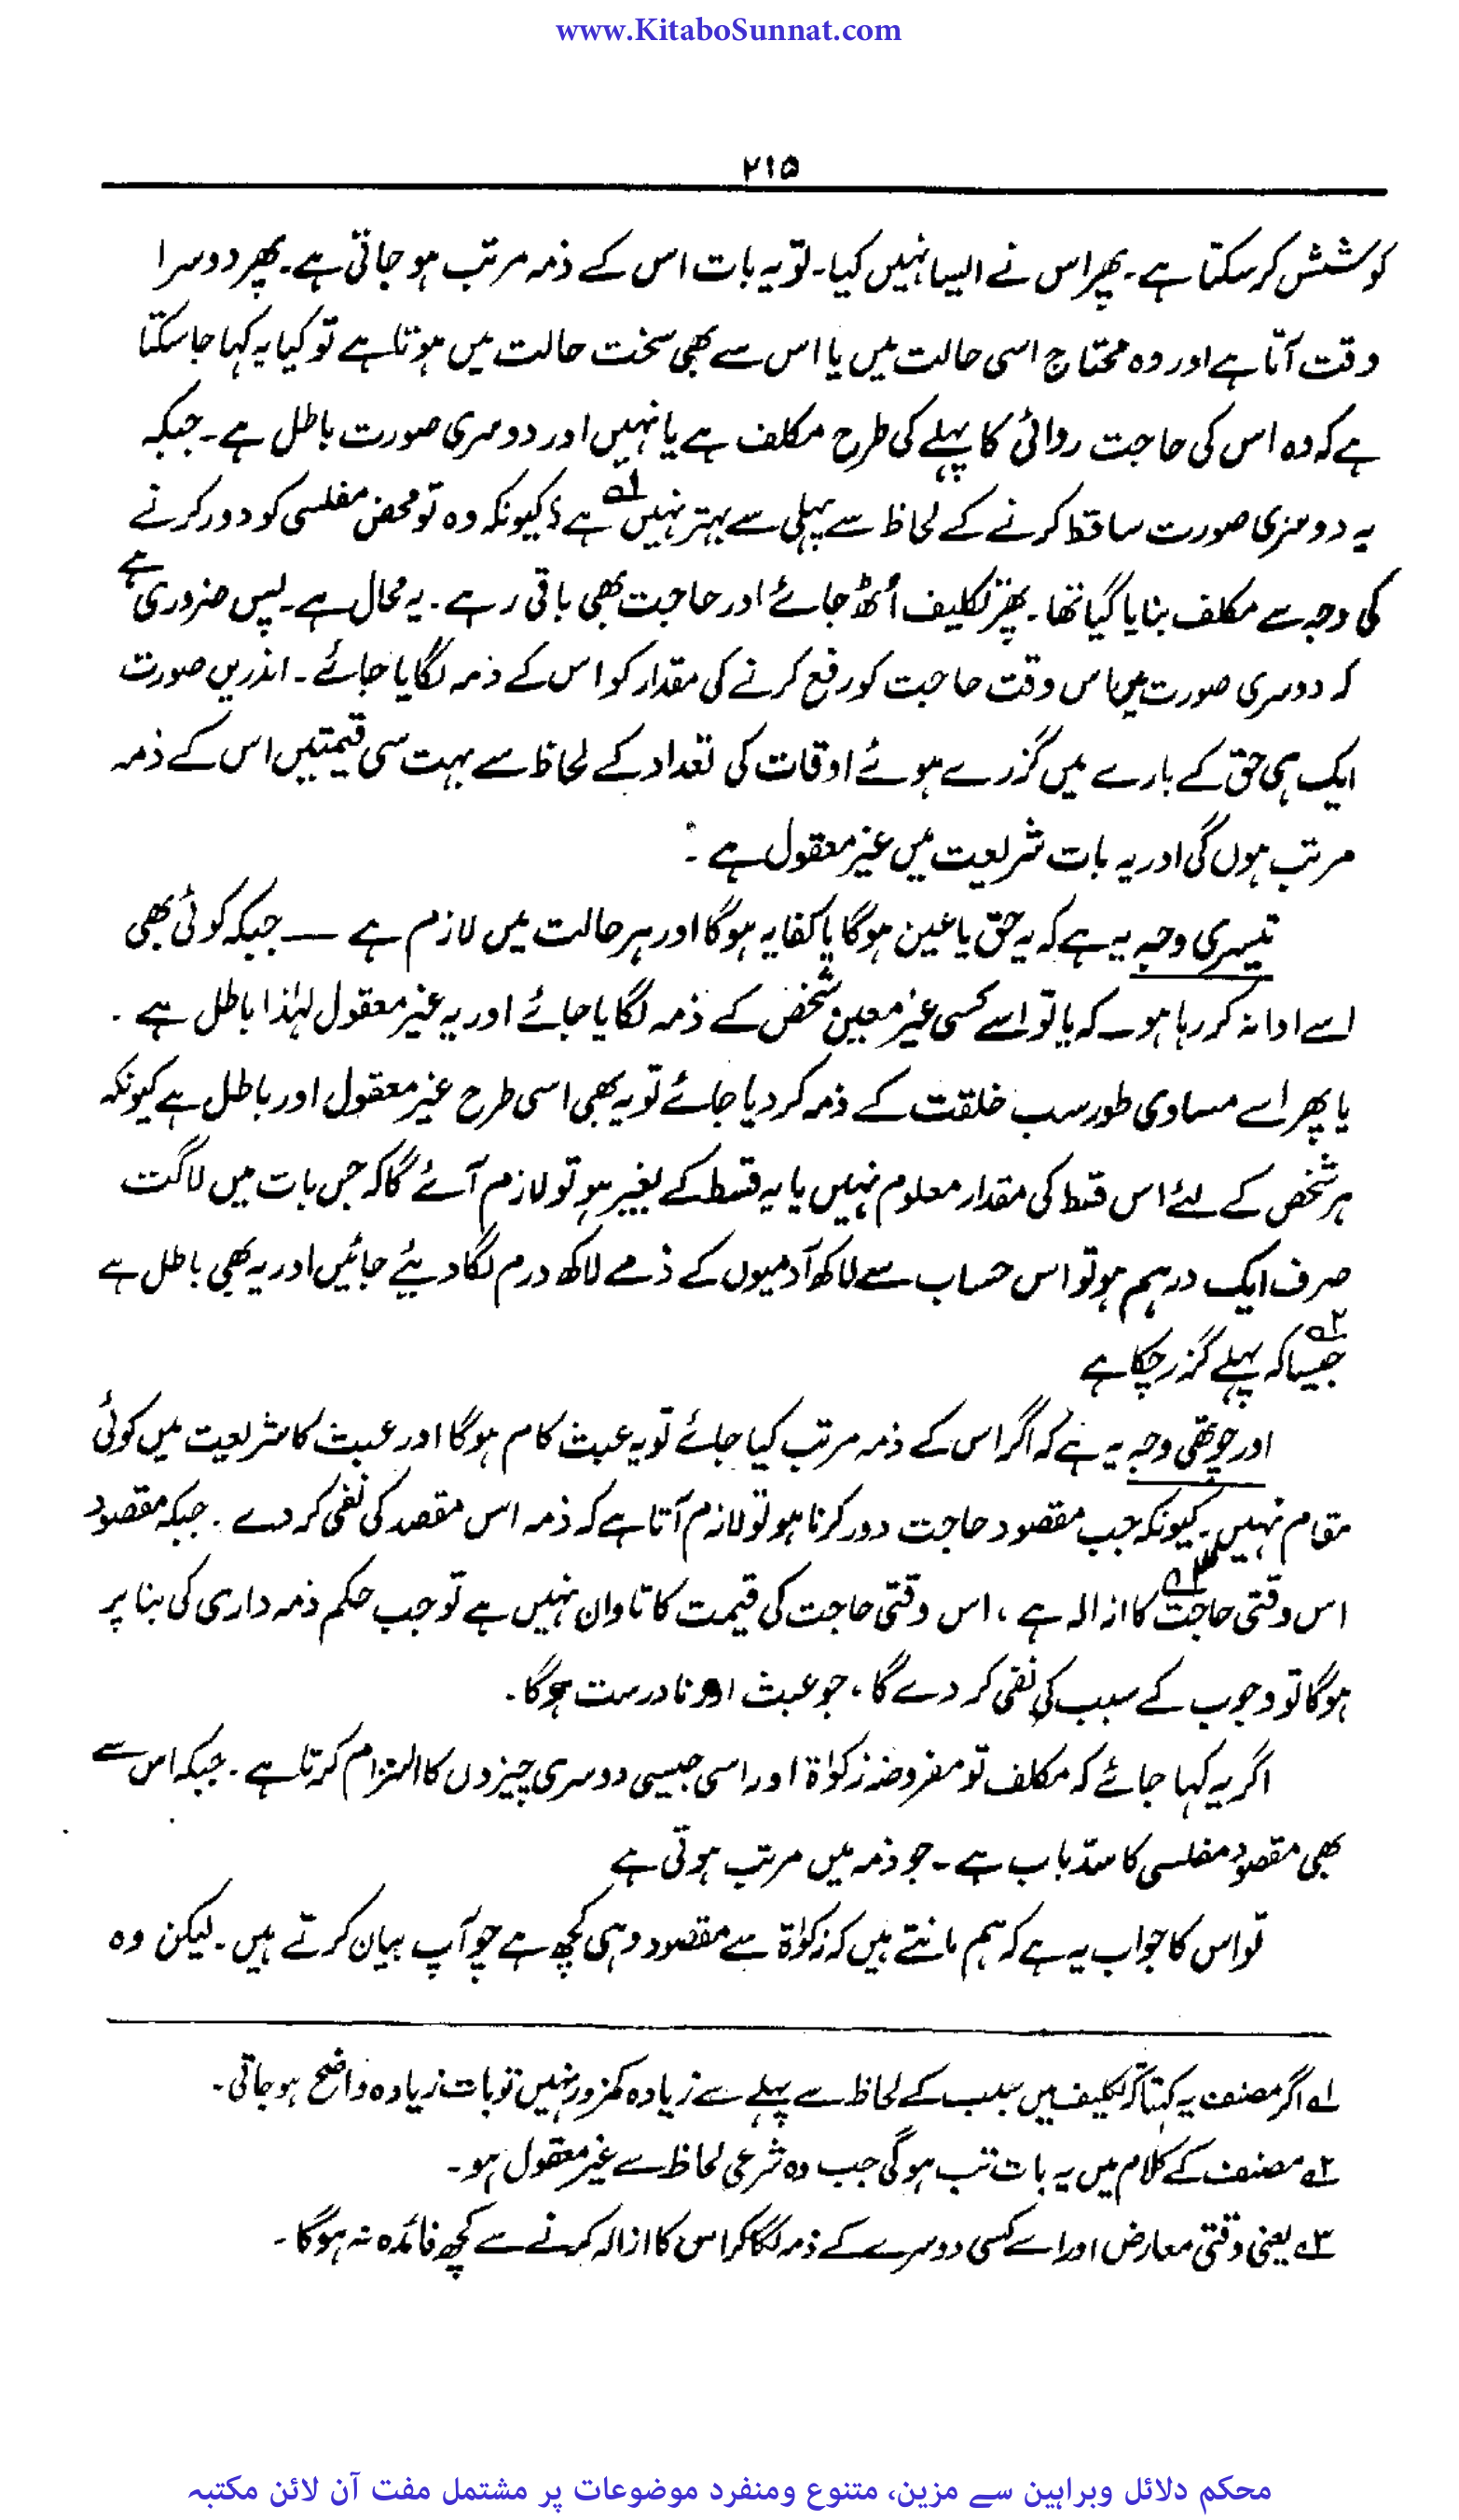 www.KitaboSunnat.com
۲۱۵
کوشش کر سکتا ہے۔ پھر اس نے ایسا نہیں کیا۔ تو یہ بات اس کے ذمہ مرتب ہو جاتی ہے۔ پھر دوسرا
وقت آتا ہے اور وہ محتاج اسی حالت میں یا اس سے بھی سخت حالت میں ہوتا ہے تو کیا یہ کہا جا سکتا
ہے کہ وہ اس کی حاجت روائی کا پہلے کی طرح مکلف ہے یا نہیں اور دوسری صورت باطل ہے۔ جبکہ
یہ دوسری صورت ساقط کرنے کے لحاظ سے پہلی سے بہتر نہیں ۱ہ ہے؛ کیونکہ وہ تو محض مفلسی کو دور کرنے
کی وجہ سے مکلف بنایا گیا تھا۔ پھر تکلیف اُٹھ جائے اور حاجت بھی باقی رہے۔ یہ محال ہے۔ پس ضروری ہے
کہ دوسری صورت میں اس وقت حاجت کو رفع کرنے کی مقدار کو اس کے ذمہ لگایا جائے۔ اندریں صورت
ایک ہی حق کے بارے میں گزرے ہوئے اوقات کی تعداد کے لحاظ سے بہت سی قیمتیں اس کے ذمہ
مرتب ہوں گی اور یہ بات شریعت میں غیر معقول ہے۔
تیسری وجہ یہ ہے کہ یہ حق یا عین ہوگا یا کفایہ ہوگا اور ہر حالت میں لازم ہے — جبکہ کوئی بھی
اسے ادا نہ کر رہا ہو۔ کہ یا تو اسے کسی غیر معین شخص کے ذمہ لگایا جائے اور یہ غیر معقول لہٰذا باطل ہے۔
یا پھر اسے مساوی طور سب خلقت کے ذمہ کر دیا جائے تو یہ بھی اسی طرح غیر معقول اور باطل ہے کیونکہ
ہر شخص کے لئے اس قسط کی مقدار معلوم نہیں یا یہ قسط کے بغیر ہو تو لازم آئے گا کہ جس بات میں لاگت
صرف ایک درہم ہو تو اس حساب سے لاکھ آدمیوں کے ذمے لاکھ درم لگا دیئے جائیں اور یہ بھی باطل ہے
جیسا کہ ۲ہ پہلے گزر چکا ہے
اور چوتھی وجہ یہ ہے کہ اگر اس کے ذمہ مرتب کیا جائے تو یہ عبث کام ہوگا اور عبث کا شریعت میں کوئی
مقام نہیں۔ کیونکہ جب مقصود حاجت دور کرنا ہو تو لازم آتا ہے کہ ذمہ اس مقصد کی نفی کر دے۔ جبکہ مقصود
اس وقتی حاجت ۳ہ کا ازالہ ہے، اس وقتی حاجت کی قیمت کا تاوان نہیں ہے تو جب حکم ذمہ داری کی بنا پر
ہوگا تو وجوب کے سبب کی نفی کر دے گا، جو عبث اور نادرست ہوگا۔
اگر یہ کہا جائے کہ مکلف تو مفروضہ زکوٰۃ اور اسی جیسی دوسری چیزوں کا التزام کرتا ہے۔ جبکہ اس سے
بھی مقصود مفلسی کا سدّباب ہے۔ جو ذمہ میں مرتب ہوتی ہے
تو اس کا جواب یہ ہے کہ ہم مانتے ہیں کہ زکوٰۃ سے مقصود وہی کچھ ہے جو آپ بیان کرتے ہیں۔ لیکن وہ
۱ہ اگر مصنف یہ کہتا کہ تکلیف میں سبب کے لحاظ سے پہلے سے زیادہ کمزور نہیں تو بات زیادہ واضح ہو جاتی۔
۲ہ مصنف کے کلام میں یہ بات تب ہوگی جب وہ شرعی لحاظ سے غیر معقول ہو۔
۳ہ یعنی وقتی معارض اور اسے کسی دوسرے کے ذمہ لگا کر اس کا ازالہ کرنے سے کچھ فائدہ نہ ہوگا۔
محکم دلائل وبراہین سے مزین، متنوع ومنفرد موضوعات پر مشتمل مفت آن لائن مکتبہ